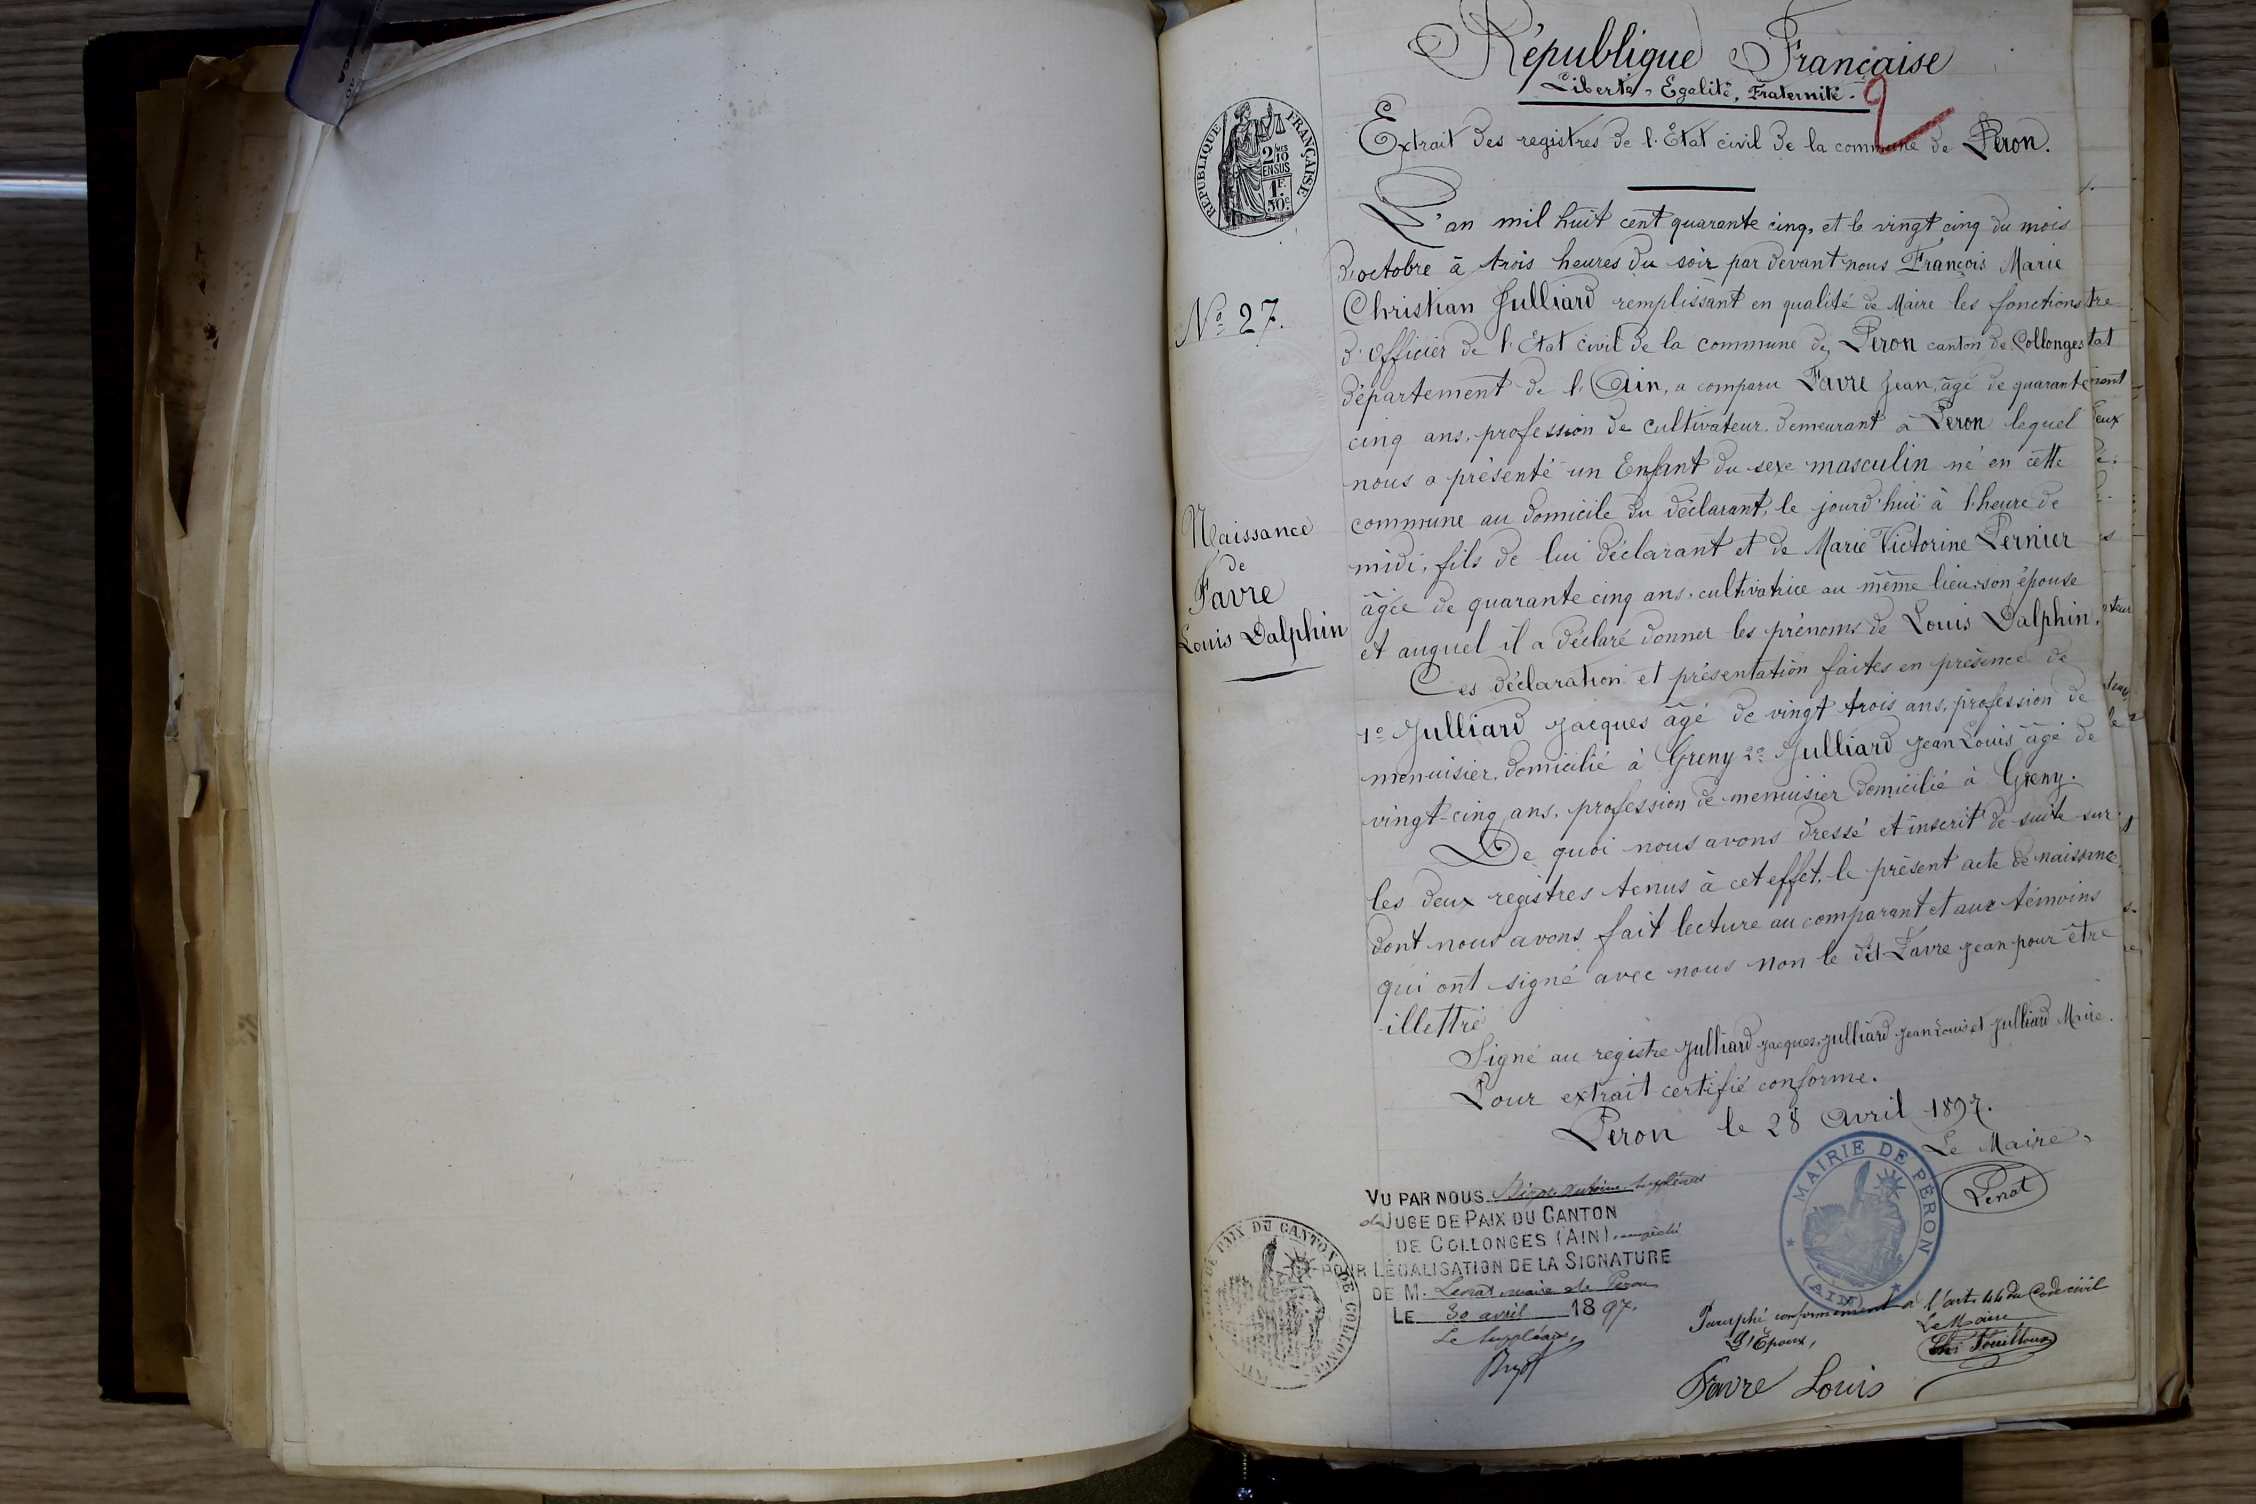 République Française
Liberté, Egalité, Fraternité.
2
Extrait des registres de l'Etat civil de la commune de Peron.
REPUBLIQUE FRANÇAISE
2 MES 10 EN SUS
1F. 50c.
L'an mil huit cent quarante cinq, et le vingt cinq du mois
d'octobre à trois heures du soir par devant nous François Marie
Christian Julliard remplissant en qualité de Maire les fonctions
No 27.
d'Officier de l'Etat civil de la commune de Peron canton de Collonges
département de l'Ain, a comparu Favre Jean, âgé de quarante
cinq ans, profession de cultivateur demeurant à Peron lequel
nous a présenté un Enfant du sexe masculin né en cette
commune au domicile du déclarant, le jourd'hui à l'heure de
midi, fils de lui déclarant et de Marie Victorine Pernier
âgée de quarante cinq ans, cultivatrice au même lieu, son épouse
et auquel il a déclaré donner les prénoms de Louis Dalphin.
Naissance
de
Favre
Louis Dalphin
Ces déclaration et présentation faites en présence de
1o Julliard Jacques âgé de vingt trois ans, profession de
menuisier, domicilié à Greny 2o Julliard Jean Louis âgé de
vingt-cinq ans, profession de menuisier domicilié à Greny.
De quoi nous avons dressé et inscrit de suite sur
les deux registres tenus à cet effet, le présent acte de naissance,
dont nous avons fait lecture au comparant et aux témoins
qui ont signé avec nous non le dit Favre Jean pour être
illettré
Signé au registre Julliard Jacques, Julliard Jean Louis et Julliard Maire.
Pour extrait certifié conforme.
Peron le 28 Avril 1897.
Le Maire,
MAIRIE DE PÉRON
(AIN)
VU PAR NOUS Antoine suppléant
du JUGE DE PAIX DU CANTON
DE COLLONGES (AIN), empêché
POUR LÉGALISATION DE LA SIGNATURE
DE M. maire de Peron
LE 30 avril 1897.
Le suppléant,
DE PAIX DU CANTON DE COLLONGES
Paraphé conformément à l'art. 44 du Code civil
L'Epoux,
Le Maire,
Favre Louis